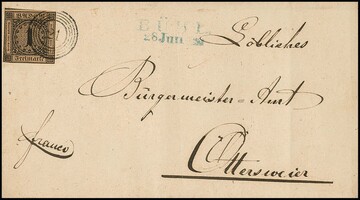 BADEN
Freimarke
BÜHL
28 Jun
Löbliches
Bürgermeister-Amt
franco
Ottersweier